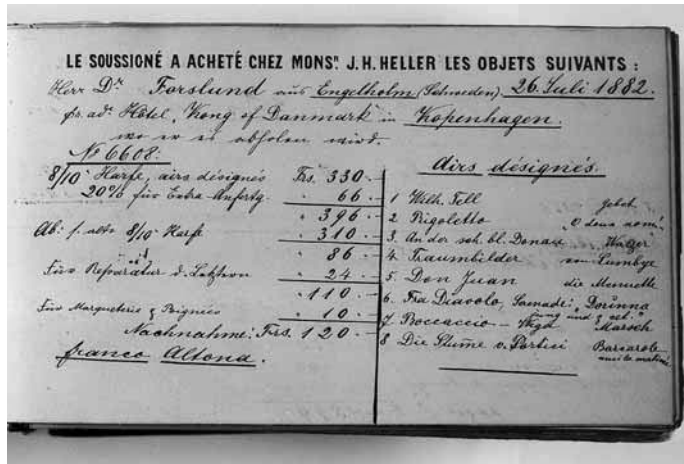 LE SOUSSIONÉ A ACHETÉ CHEZ MONSR. J. H. HELLER LES OBJETS SUIVANTS :
Herr Dr. Forslund aus Engelholm (Schweden). 26. Juli 1882.
pr. ad. Hôtel, Kong of Danmark in Kopenhagen.
wo er es abholen wird.
No 6608.
8/10 Harfe, airs désignés Frs. 330.-
20% für Extra-Anfertg. " 66.-
" 396.-
Ab: f. alte 8/10 Harfe " 310.-
" 86.-
Für Reparatur d. Letztern " 24.-
" 110.-
Für Marqueterie & Poignées " 10.-
Nachnahme: Frs. 120.-
franco Altona.
Airs désignés.
1 Wilh. Tell Gebet
2 Rigoletto
3. An der sch. bl. Donau Walzer
4. Traumbilder von Lumbye
5 Don Juan die Menuette
6. Fra Diavolo, Serenade:
7 Boccaccio - Marsch
8 Die Stume v. Portici Barcarole